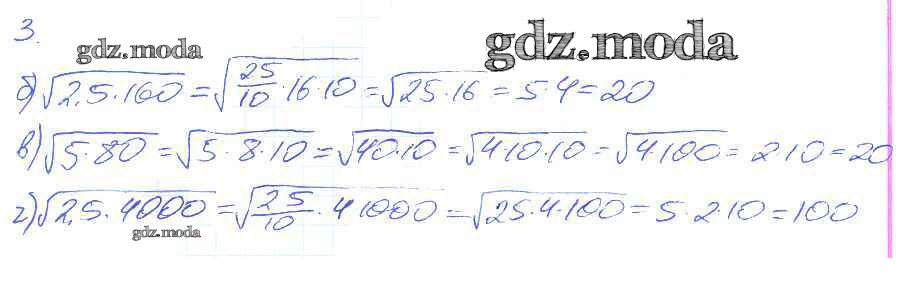 3.
gdz.moda
gdz.moda
б) √2,5·160 = √25/10·16·10 = √25·16 = 5·4 = 20
в) √5·80 = √5·8·10 = √40·10 = √4·10·10 = √4·100 = 2·10 = 20
г) √2,5·4000 = √25/10·4·1000 = √25·4·100 = 5·2·10 = 100
gdz.moda